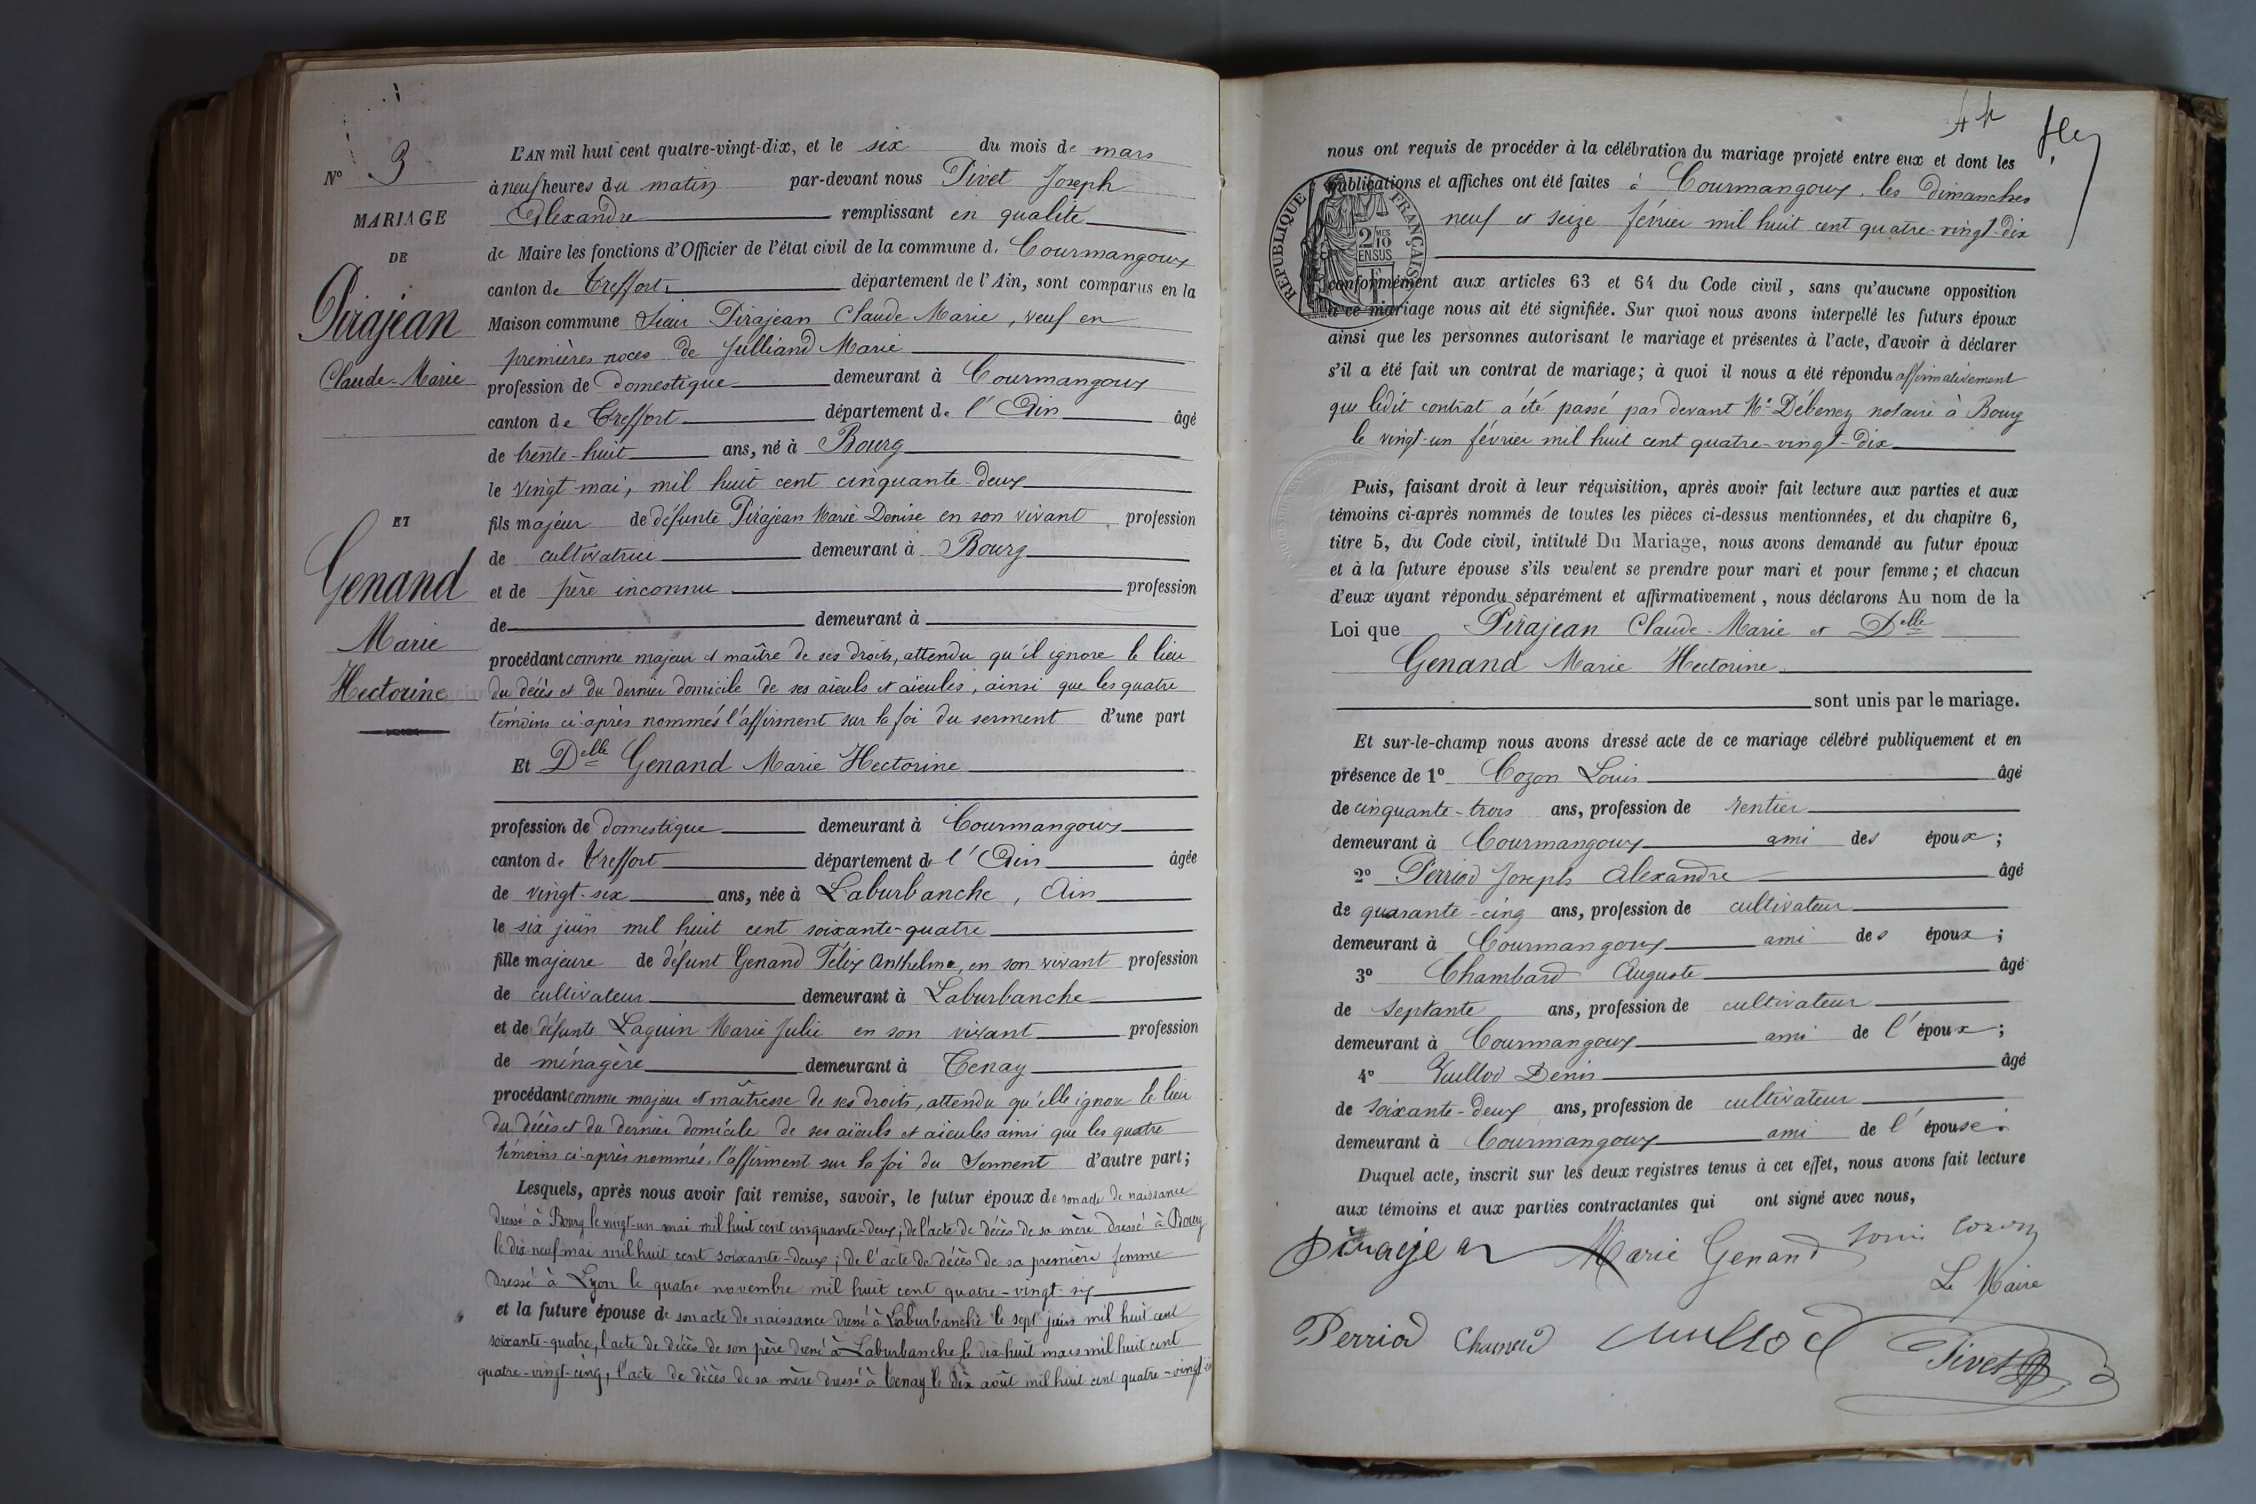 N° 3
MARIAGE
DE
Pirajean
Claude-Marie
ET
Genand
Marie
Hectorine
L'AN mil huit cent quatre-vingt-dix, et le six du mois de mars
à neuf heures du matin par-devant nous Pivet Joseph
Alexandre remplissant en qualité
de Maire les fonctions d'Officier de l'état civil de la commune d. Courmangoux
canton de Treffort département de l'Ain, sont comparus en la
Maison commune Sieur Pirajean Claude Marie, veuf en
premières noces de Julliand Marie
profession de domestique demeurant à Courmangoux
canton de Treffort département de l'Ain âgé
de trente-huit ans, né à Bourg
le vingt mai, mil huit cent cinquante-deux
fils majeur de défunte Pirajean Marie Denise en son vivant, profession
de cultivatrice demeurant à Bourg
et de père inconnu profession
de demeurant à
procédant comme majeur et maître de ses droits, attendu qu'il ignore le lieu
du décès et du dernier domicile de ses aïeuls et aïeules, ainsi que les quatre
témoins ci-après nommés l'affirment sur la foi du serment d'une part
Et Delle Genand Marie Hectorine
profession de domestique demeurant à Courmangoux
canton de Treffort département de l'Ain âgée
de vingt-six ans, née à Laburbanche, Ain
le six juin mil huit cent soixante-quatre
fille majeure de défunt Genand Félix Anthelme, en son vivant profession
de cultivateur demeurant à Laburbanche
et de défunte Laguin Marie Julie en son vivant profession
de ménagère demeurant à Tenay
procédant comme majeur et maîtresse de ses droits, attendu qu'elle ignore le lieu
du décès et du dernier domicile de ses aïeuls et aïeules ainsi que les quatre
témoins ci-après nommés, l'affirment sur la foi du serment d'autre part;
Lesquels, après nous avoir fait remise, savoir, le futur époux de son acte de naissance
dressé à Bourg le vingt-un mai mil huit cent cinquante-deux; de l'acte de décès de sa mère dressé à Bourg
le dix neuf mai mil huit cent soixante-deux; de l'acte de décès de sa première femme
dressé à Lyon le quatre novembre mil huit cent quatre-vingt-six
et la future épouse de son acte de naissance dressé à Laburbanche le sept juin mil huit cent
soixante-quatre, l'acte de décès de son père dressé à Laburbanche le dix-huit mars mil huit cent
quatre-vingt-cinq, l'acte de décès de sa mère dressé à Tenay le dix août mil huit cent quatre-vingt
nous ont requis de procéder à la célébration du mariage projeté entre eux et dont les
publications et affiches ont été faites à Courmangoux, les dimanches
neuf et seize février mil huit cent quatre-vingt-dix
RÉPUBLIQUE FRANÇAISE
2 MES
10
EN SUS
conformément aux articles 63 et 64 du Code civil, sans qu'aucune opposition
à ce mariage nous ait été signifiée. Sur quoi nous avons interpellé les futurs époux
ainsi que les personnes autorisant le mariage et présentes à l'acte, d'avoir à déclarer
s'il a été fait un contrat de mariage; à quoi il nous a été répondu affirmativement
que ledit contrat a été passé par devant Me Débeney notaire à Bourg
le vingt-un février mil huit cent quatre-vingt-dix
Puis, faisant droit à leur réquisition, après avoir fait lecture aux parties et aux
témoins ci-après nommés de toutes les pièces ci-dessus mentionnées, et du chapitre 6,
titre 5, du Code civil, intitulé Du Mariage, nous avons demandé au futur époux
et à la future épouse s'ils veulent se prendre pour mari et pour femme; et chacun
d'eux ayant répondu séparément et affirmativement, nous déclarons Au nom de la
Loi que Pirajean Claude-Marie et Delle
Genand Marie Hectorine
sont unis par le mariage.
Et sur-le-champ nous avons dressé acte de ce mariage célébré publiquement et en
présence de 1° Cozon Louis âgé
de cinquante-trois ans, profession de rentier
demeurant à Courmangoux ami des époux;
2° Perriod Joseph Alexandre âgé
de quarante-cinq ans, profession de cultivateur
demeurant à Courmangoux ami des époux;
3° Chambard Auguste âgé
de septante ans, profession de cultivateur
demeurant à Courmangoux ami de l'époux;
4° Vuillod Denis âgé
de soixante-deux ans, profession de cultivateur
demeurant à Courmangoux ami de l'épouse.
Duquel acte, inscrit sur les deux registres tenus à cet effet, nous avons fait lecture
aux témoins et aux parties contractantes qui ont signé avec nous,
Pirajean Marie Genand Louis Cozon
Le Maire
Perriod Vuillod Pivet